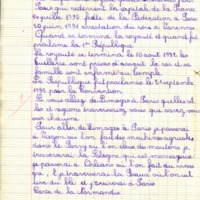 Paris qui redevient la capitale de la France
14 juillet 1790 fête de la Fédération à Paris
20 juin 1791 arrestation du roi à Varennes
Quand se termina la royauté et quand fut
proclamée la 1ère République
La royauté se termina le 10 août 1792 les
Tuileries sont prises d'assaut le roi et sa
famille sont enfermés au temple
La République fut proclamée le 21 septembre
1792 par la Convention
Si vous alliez de Limoges à Paris quelles
les régions traverserez vous qui savez vous
sur chacune
Pour aller de Limoges à Paris je passerai
à Vierzon où l'on fait des machines agricoles
dans le Berry où l'on élève des moutons je
traverserai la Sologne qui est marécageuse
je passerai à Orléans où l'on fait du vinaigre
, je traverserai la Beauce où l'on cultive
du blé et j'arriverai à Paris
Carte de la Normandie